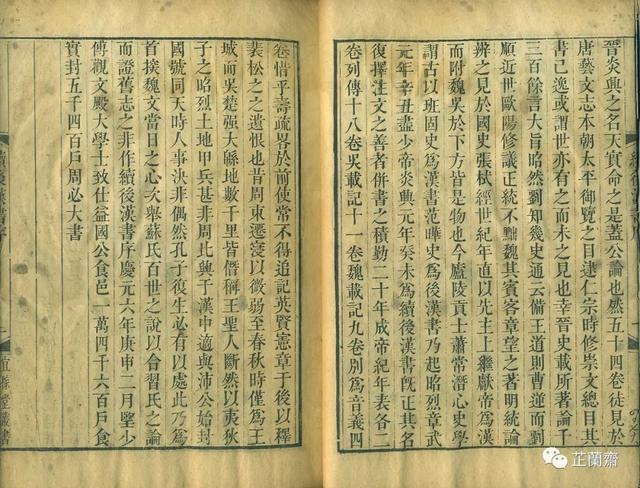 晉炎興之名天實命之是蓋公論也然五十四卷徒見於
唐藝文志本朝太平御覽之目逮仁宗時修崇文總目其
書已逸或謂世亦有之而未之見也幸晉史載所著論千
三百餘言大旨昭然劉知幾史通云備王道則曹逆而劉
順近世歐陽修議正統不黜魏其賓客章望之著明統論
辨之見於國史張栻經世紀年直以先主上繼獻帝為漢
而附魏吳於下方皆是物也今廬陵貢士蕭常潛心史學
謂古以班固史為漢書范曄史為後漢書乃起昭烈章武
元年辛丑盡少帝炎興元年癸未為續後漢書旣正其名
復擇注文之善者併書之積勤二十年成帝紀年表各二
卷列傳十八卷吳載記十一卷魏載記九卷別為音義四
卷惜乎壽疏畧於前使常不得追記英賢憲章于後以釋
裴松之之遺恨也昔周東遷寖以微弱至春秋時僅為王
城而吳楚强大緜地數千里皆僭稱王聖人斷然以夷狄
子之昭烈土地甲兵甚非周比興于漢中適與沛公始封
國號同天時人事決非偶然孔子復生必有以處此乃為
首揆魏文當日之心次舉蘇氏百世之說以合習氏之論
而證舊志之非作續後漢書序慶元六年庚申二月壁少
傅觀文殿大學士致仕益國公食邑一萬四千六百戶食
實封五千四百戶周必大書
續後漢書序
宜稼堂叢書
芷蘭齋